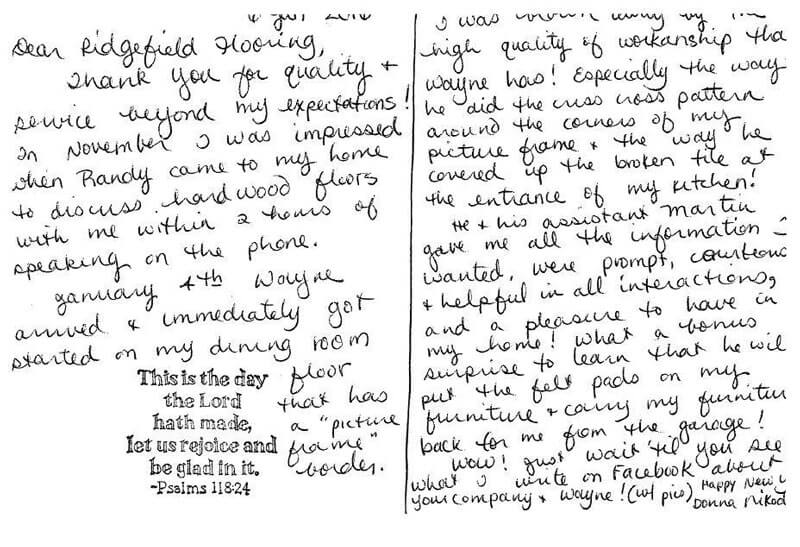 Dear Ridgefield Flooring,
Thank you for quality +
service beyond my expectations!
In November I was impressed
when Randy came to my home
to discuss hardwood floors
with me within 2 hours of
speaking on the phone.
January 4th Wayne
arrived & immediately got
started on my dining room
floor
that has
a "picture
frame"
border.
This is the day
the Lord
hath made,
let us rejoice and
be glad in it.
~Psalms 118:24
I was blown away by the
high quality of workanship tha
Wayne has! Especially the way
he did the criss cross pattern
around the corners of my
picture frame & the way he
covered up the broken tile at
the entrance of my kitchen!
He & his assistant Martin
gave me all the information I
wanted, were prompt, courteous
& helpful in all interactions,
and a pleasure to have in
my home! What a bonus
surprise to learn that he will
put the felt pads on my
furniture & carry my furnitur
back for me from the garage!
Wow! Just wait 'til you see
what I write on Facebook about
your company & Wayne! (w/ pics)
Happy New Y
Donna Nikod